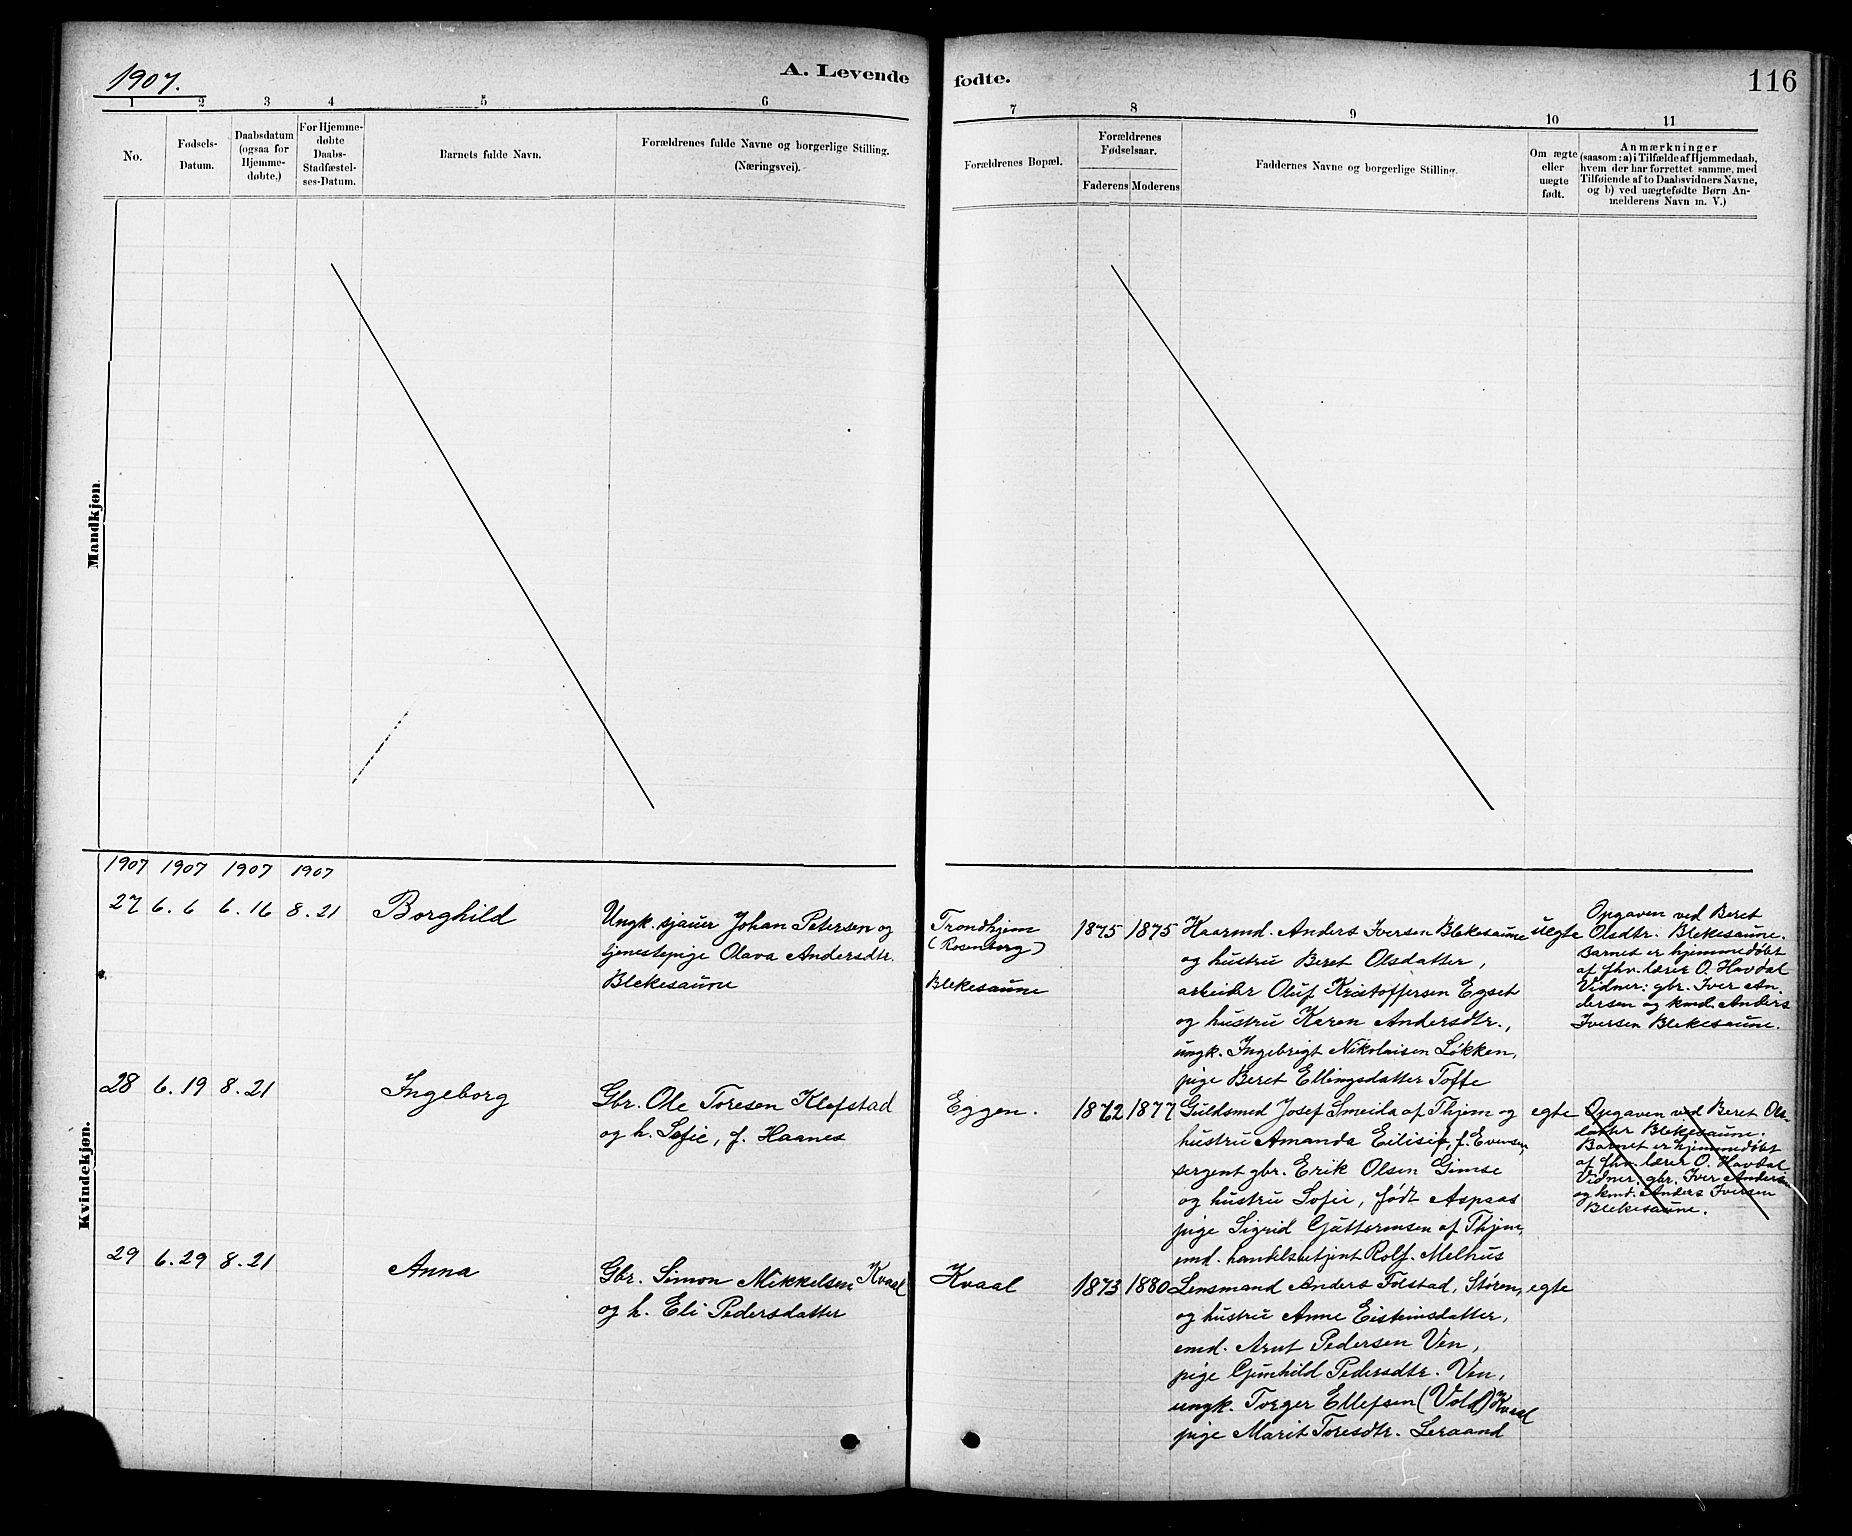 1907.
A. Levende fødte.
116
1 2 3 4 5 6 7 8 9 10 11
No.
Fødsels-
Datum.
Daabsdatum
(ogsaa for
Hjemme-
døbte.)
For Hjemme-
døbte
Daabs-
Stadfæstel-
ses-Datum.
Barnets fulde Navn.
Forældrenes fulde Navne og borgerlige Stilling.
(Næringsvei).
Forældrenes Bopæl.
Forældrenes
Fødselsaar.
Faderens
Moderens
Faddernes Navne og borgerlige Stilling.
Om ægte
eller
uægte
født.
Anmærkninger
(saasom: a) i Tilfælde af Hjemmedaab,
hvem der har forrettet samme, med
Tilføiende af to Daabsvidners Navne,
og b) ved uægtefødte Børn An-
melderens Navn m. V.)
Mandkjøn.
Kvindekjøn.
1907 1907 1907 1907
27 6.6 6.16 8.21 Borghild
Ungk. sjauer Johan Petersen og
tjenestepige Olava Andersdtr.
Blekesaune
Trondhjem
(Rosenborg)
Blekesaune
1875 1875
Kaarmd. Anders Iversen Blekesaune
og hustru Beret Olsdatter,
arbeider Oluf Kristoffersen Egset
og hustru Karen Andersdtr.,
ungk. Ingebrigt Nikolaisen Løkken,
pige Beret Ellingsdatter Tofte
uegte
Opgaven ved Beret
Olsdtr. Blekesaune.
Barnet er hjemmedøbt
af fhv. lærer O. Havdal
Vidner: gbr. Iver An-
dersen og kmd. Anders
Iversen Blekesaune.
28 6.19 8.21 Ingeborg
Gbr. Ole Toresen Klefstad
og h. Sofie, f. Haanes
Eggen.
1872 1877
Guldsmed Josef Smeida af Thjem og
hustru Amanda Eilisif, f. Evensen,
sergent gbr. Erik Olsen Gimse
og hustru Sofie, født Aspaas
pige Sigrid Guttormsen af Thjem,
emd. handelsbetjent Rolf Melhus
egte
Opgaven ved Beret Ols-
datter Blekesaune.
Barnet er hjemmedøbt
af fhv. lærer O. Havdal
Vidner: gbr. Iver Andersen
og kmd. Anders Iversen
Blekesaune.
29 6.29 8.21 Anna
Gbr. Simon Mikkelsen Kvaal
og h. Eli Pedersdatter
Kvaal
1873 1880
Lensmand Anders Folstad, Støren,
og hustru Anne Eisteinsdatter,
emd. Arnt Pedersen Ven,
pige Gunhild Pedersdtr. Ven,
ungk. Torger Ellefsen (Vold) Kvaal
pige Marit Toresdtr. Leraand
egte